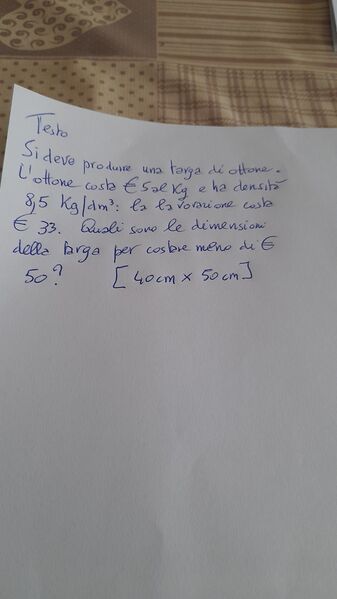 Testo
Si deve produrre una targa di ottone.
L'ottone costa € 5 al Kg e ha densità
8,5 Kg/dm³: la lavorazione costa
€ 33. Quali sono le dimensioni
della targa per costare meno di €
50? [40cm x 50cm]